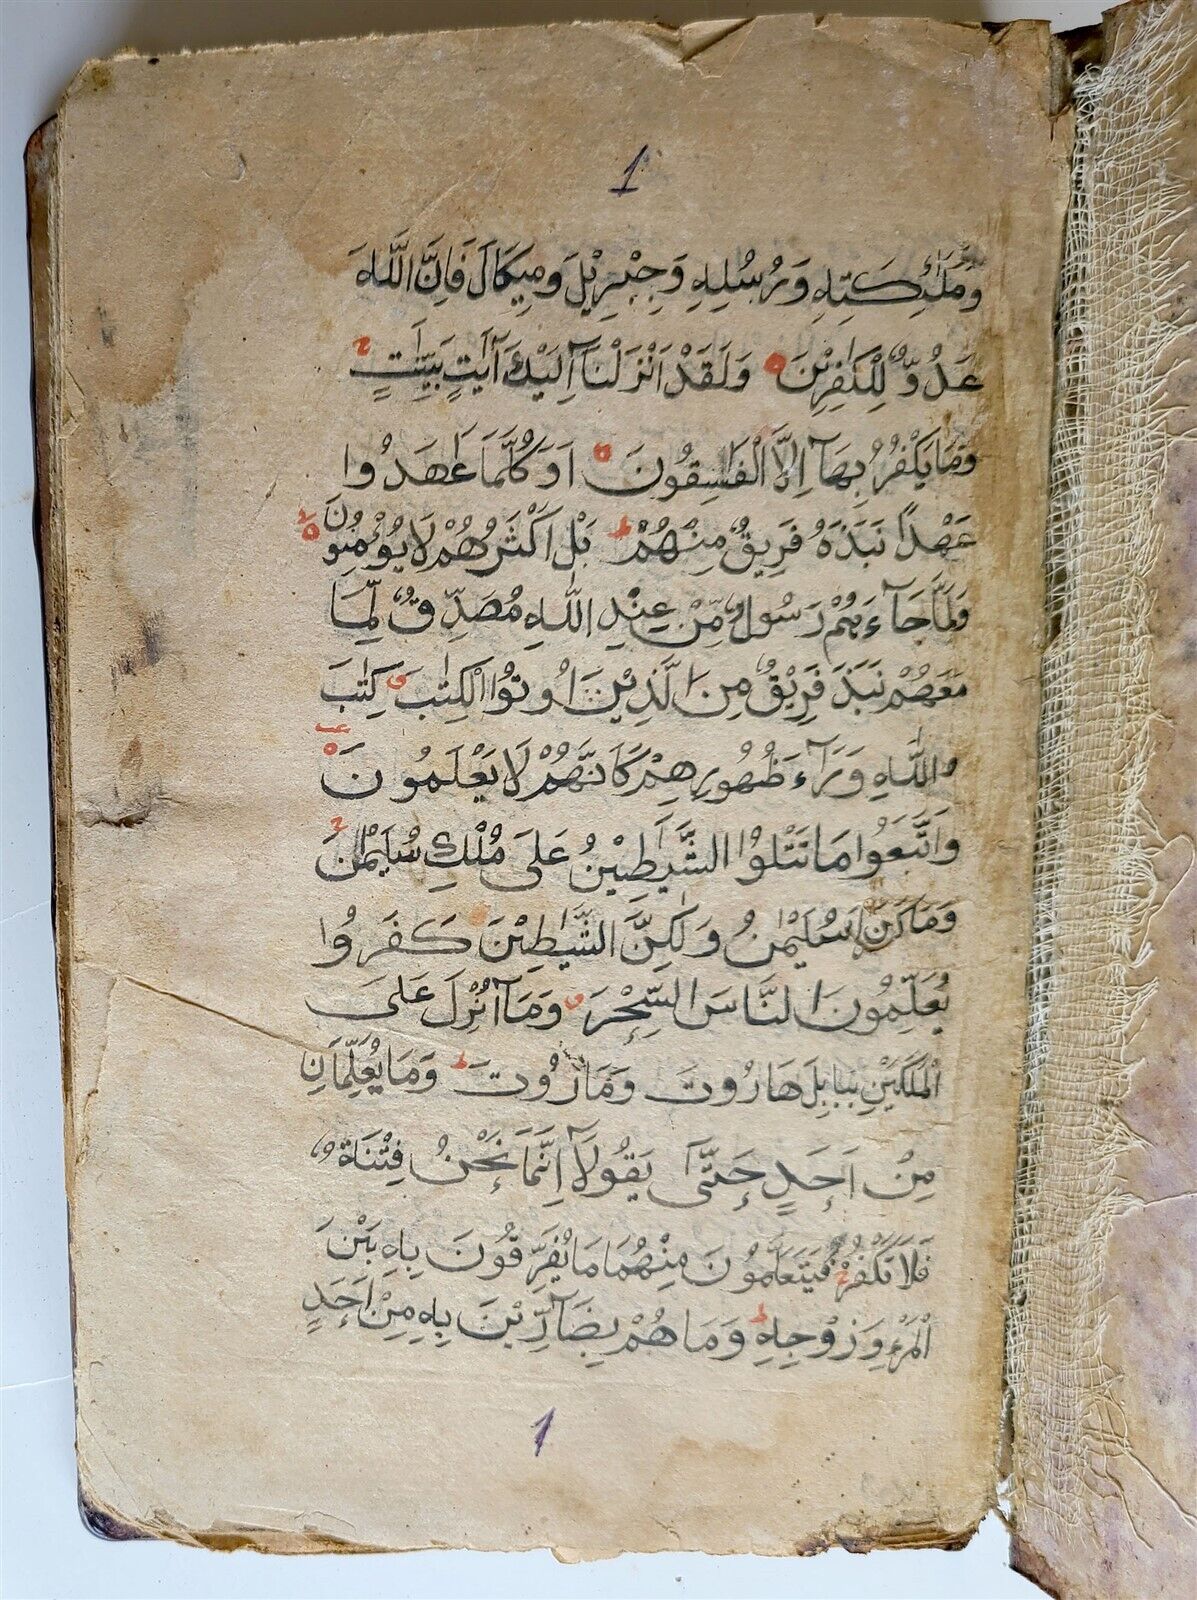 1
وَمَلٰٓئِكَتِهٖ وَرُسُلِهٖ وَجِبْرِيْلَ وَمِيكَالَ فَاِنَّ اللّٰهَ
عَدُوٌّ لِّلْكٰفِرِيْنَ وَلَقَدْ اَنْزَلْنَآ اِلَيْكَ اٰيٰتٍ بَيِّنٰتٍ
وَمَا يَكْفُرُ بِهَآ اِلَّا الْفٰسِقُوْنَ اَوَكُلَّمَا عٰهَدُوْا
عَهْدًا نَبَذَهُ فَرِيْقٌ مِنْهُمْ ط بَلْ اَكْثَرُهُمْ لَا يُؤْمِنُوْنَ
وَلَمَّا جَآءَهُمْ رَسُوْلٌ مِّنْ عِنْدِ اللّٰهِ مُصَدِّقٌ لِّمَا
مَعَهُمْ نَبَذَ فَرِيْقٌ مِنَ الَّذِيْنَ اُوتُوا الْكِتٰبَ كِتٰبَ
اللّٰهِ وَرَآءَ ظُهُوْرِهِمْ كَاَنَّهُمْ لَا يَعْلَمُوْنَ
وَاتَّبَعُوا مَا تَتْلُوا الشَّيٰطِيْنُ عَلٰى مُلْكِ سُلَيْمٰنَ
وَمَا كَفَرَ سُلَيْمٰنُ وَلٰكِنَّ الشَّيٰطِيْنَ كَفَرُوْا
يُعَلِّمُوْنَ النَّاسَ السِّحْرَ وَمَآ اُنْزِلَ عَلَى
الْمَلَكَيْنِ بِبَابِلَ هَارُوتَ وَمَارُوتَ ط وَمَا يُعَلِّمَانِ
مِنْ اَحَدٍ حَتّٰى يَقُولَآ اِنَّمَا نَحْنُ فِتْنَةٌ
فَلَا تَكْفُرْ فَيَتَعَلَّمُوْنَ مِنْهُمَا مَا يُفَرِّقُوْنَ بِهٖ بَيْنَ
الْمَرْءِ وَزَوْجِهٖ ط وَمَا هُمْ بِضَآرِّيْنَ بِهٖ مِنْ اَحَدٍ
1